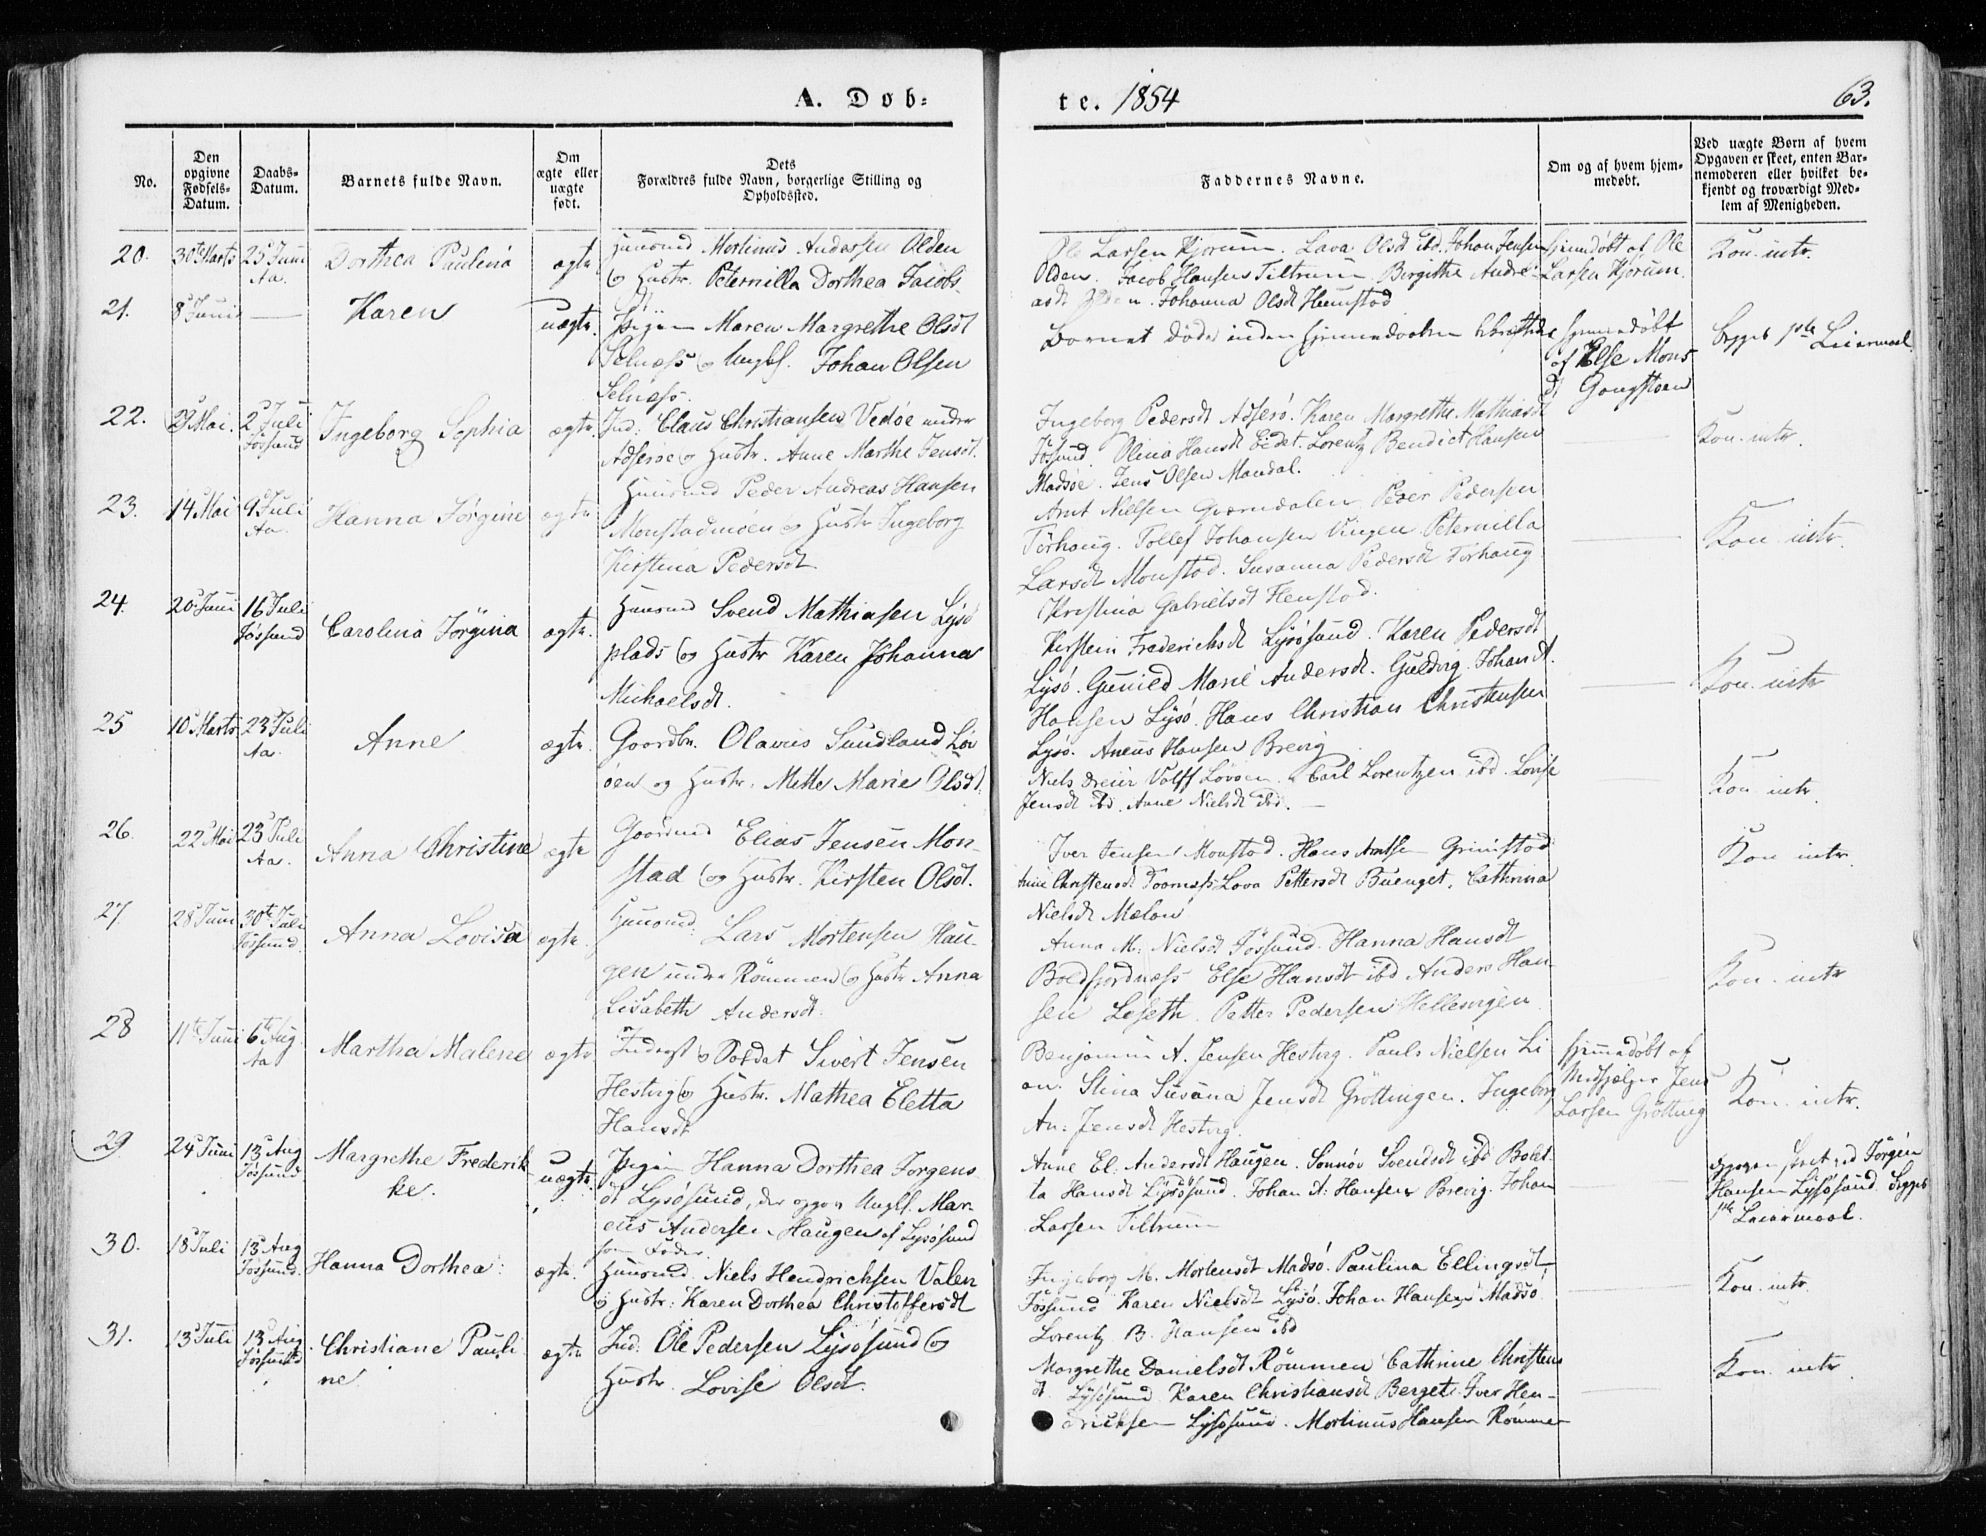 A. Døb-
te. 1854
63.
No.
Den opgivne Fødsels-Datum.
Daabs-Datum.
Barnets fulde Navn.
Om ægte eller uægte født.
Dets Forældres fulde Navn, borgerlige Stilling og Opholdssted.
Faddernes Navne.
Om og af hvem hjem-
medøbt.
Ved uægte Børn af hvem
Opgaven er skeet, enten Bar-
nemoderen eller hvilket be-
kjendt og troværdigt Med-
lem af Menigheden.
20. 30te Marts 25 Juni Aa. Dorthea Paulina ægte
Huusmd Mortinus Andersen Olden
og Hustr. Peternilla Dorthea Jacobs-
dt
Ole Larsen Kjørum. Lava Olsdt ibd. Johan Jensen
Olden. Jacob Hansen Tiltrum. Birgithe Andre-
asdt Olden. Johanna Olsdt Humstad
Hjemmedøbt af Ole
Larsen Kjørum.
Kon. intr.
21. 8 Juni — Karen uægte.
Pigen Maren Margrethe Olsdt
Selnæss og Ungkl. Johan Olsen
Selnæss.
Barnet døde inden Hjemmedaaben
Hjemmedøbt
af Else Mons-
dt Gongstøen
Begges 1ste Leiermaal
22. 29 Mai. 2 Juli Jössund Ingeborg Sophia ægte
Ind: Claus Christiansen Vedøe under
Adserøe og Hustr. Anne Marthe Jensdt.
Ingeborg Pedersdt Adserö. Karen Margrethe Mathiasdt
Jösund. Olina Hansdt Eidet. Lorentz Bendict Hansen
Madsøe. Jens Olsen Mandal.
Kon. intr.
23. 14 Mai 9 Juli Aa. Hanna Jörgine ægte
Huusmd Peder Andreas Hansen
Monstadmoen og Hustr Ingeborg
Kirstina Pedersdt
Arnt Nielsen Grøndalen Peder Pedersen
Törhoug. Tollef Johansen Vingen Peternilla
Larsdt Monstad. Susanna Pedersdt Törhoug
Kristina Gabrielsdt Henstad.
Kon. intr.
24. 20 Juni 16 Juli Jössund Carolina Jörgina ægte.
Huusmd Svend Mathiasen Lysö
plads og Hustr Karen Johanna
Michaelsdt.
Kirstein Frederichsdt Lysösund. Karen Pedersdt
Lysö. Gunild Marie Andersdt. Guldvig. Johan A.
Hansen Lysö. Hans Christian Christensen
Lysö. Aneus Hansen Brevig
Kon. intr
25 10 Marts 23 Juli Aa. Anne ægte.
Goordbr. Olavus Sundland Löv
öen og Hustr. Mette Marie Olsdt.
Niels Dreier Volff Lövöen. Carl Lorentzen ibd. Lovise
Jensdt ibd. Anne Nielsdt ibd. —
Kon. intr
26. 22 Mai 23 Juli Aa. Anna Christine ægte
Goordmd Elias Jensen Mon-
stad og Hustr. Kirsten Olsdt.
Iver Jensen Monstad. Hans Arntsen Grimstad
Anne Christensdt Toornæss Lova Pettersdt Buenget. Cathrina
Nielsdt Mælan
Kon intr.
27. 28 Juni 30te Juli Jössund. Anna Lovisa ægte.
Huusmd. Lars Mortensen Hau-
gen under Römmen og Hustr Anna
Lisabeth Andersdt.
Anna M: Nielsdt Jössund. Hanna Hansdt
Boldfjordnæss Else Hansdt ibd Anders Han-
sen Leseth. Petter Pedersen Hellesvigen
Kon. intr
28 11te Juni 6te Aug. Aa Martha Malene ægte
Inderst og Soldat Sivert Jensen
Hestvig og Hustr. Mathea Eletta
Hansdt
Benjamin A. Jensen Hestvig. Paul Nielsen Li
an. Stina Susana Jensdt Gröttingen. Ingeborg
An: Jensdt Hestvig.
Hjemmedøbt af
Medhjælper Jens
Larsen Grötting
Kon. intr.
29 24 Juni 13 Aug Jössund Margrethe Frederik-
ke. uægte.
Pigen Hanna Dorthea Jörgens-
dt Lysösund, der opgav Ungkl. Mar-
cus Andersen Haugen af Lysösund
som Fader.
Anne El. Andersdt Haugen. Sonnöv Svendsdt ibd Bolet-
ta Hansdt Lysösund. Johan A: Hansen Brevig. Johan
Larsen Tiltrum
Opgaven skeet ved Jörgen
Hansen Lysösund. Begges
1ste Leiermaal.
30. 18 Juli 13 Aug Jössund. Hanna Dorthea. ægte.
Huusmd Niels Hendrichsen Valen
og Hustr: Karen Dorthea Christoffersdt
Ingeborg M. Mortensdt Madsö. Paulina Ellingsdt
Jössund Karen Nielsdt Lysö. Johan Hansen Madsö
Lorentz B. Hansen ibd
Kon. intr.
31. 13 Juli 13 Aug Jössund Christiane Pauli-
ne. ægte
Ind: Ole Pedersen Lysösund og
Hustr. Lovise Olsdt.
Margrethe Danielsdt Römmen Cathrine Christens
dt. Lysösund Karen Christiansdt Berget. Iver Hen-
dricksen Lysösund. Mortinus Hansen Römmen
Kon. intr